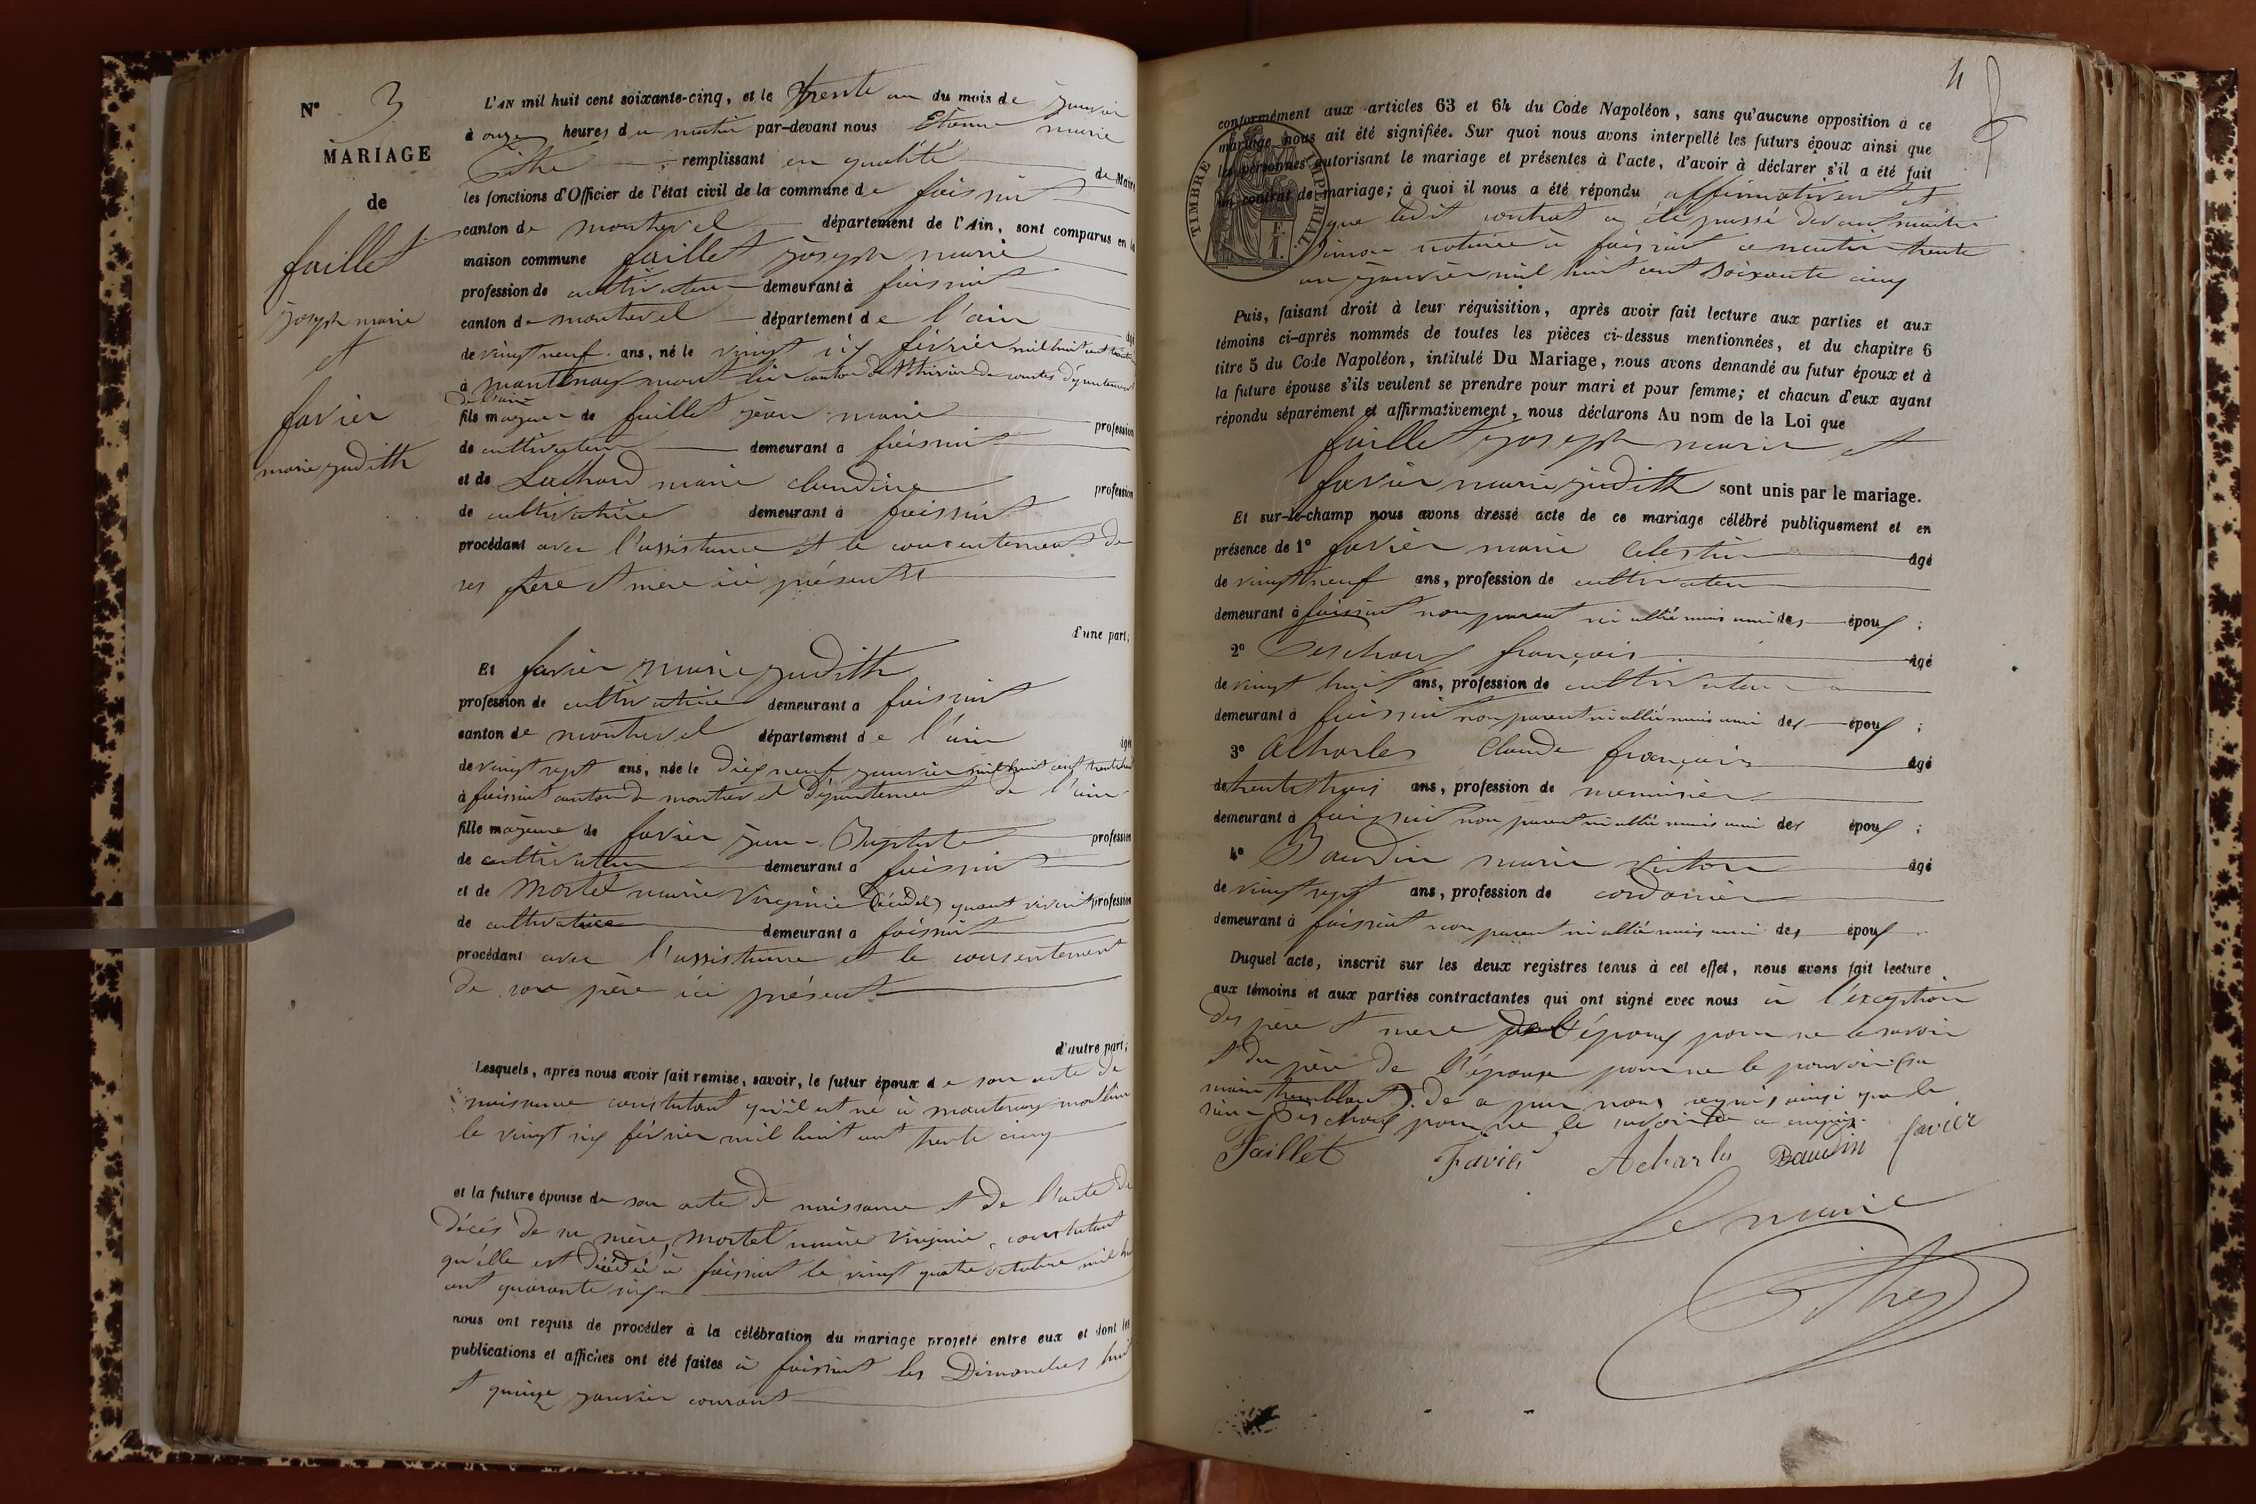 N° 3
MARIAGE
de
faillet
joseph marie
et
favier
marie judith
L'AN mil huit cent soixante-cinq, et le trente un du mois de janvier
à onze heures du matin par-devant nous Etienne marie
remplissant en qualité de Maire
les fonctions d'Officier de l'état civil de la commune de foissiat
canton de montrevel département de l'Ain, sont comparus en la
maison commune faillet joseph marie
profession de cultivateur demeurant à foissiat
canton de montrevel département de l'ain
de vingt neuf ans, né le vingt six février mil huit cent trente
à mantenay montlin canton de St trivier de courtes département
de l'ain
fils majeur de faillet jean marie profession
de cultivateur demeurant à foissiat
et de Luchard marie claudine profession
de cultivatrice demeurant à foissiat
procédant avec l'assistance et le consentement de
ses père et mère ici présents
d'une part;
Et favier marie judith
profession de cultivatrice demeurant à foissiat
canton de montrevel département de l'ain âgée
de vingt sept ans, née le dix neuf janvier mil huit cent trente huit
à foissiat canton de montrevel département de l'ain
fille majeure de favier jean-Baptiste profession
de cultivateur demeurant à foissiat
et de mortel marie virginie (décédée) quant vivait profession
de cultivatrice demeurant à foissiat
procédant avec l'assistance et le consentement
de son père ici présent
d'autre part;
Lesquels, après nous avoir fait remise, savoir, le futur époux de son acte de
naissance constatant qu'il est né à mantenay montlin
le vingt six février mil huit cent trente cinq
et la future épouse de son acte de naissance et de l'acte de
décès de sa mère, mortel marie virginie, constatant
qu'elle est décédée à foissiat le vingt quatre octobre mil hui
cent quarante six
nous ont requis de procéder à la célébration du mariage projeté entre eux et dont les
publications et affiches ont été faites à foissiat les Dimanches huit
et quinze janvier courant
4
conformément aux articles 63 et 64 du Code Napoléon, sans qu'aucune opposition à ce
mariage nous ait été signifiée. Sur quoi nous avons interpellé les futurs époux ainsi que
les personnes autorisant le mariage et présentes à l'acte, d'avoir à déclarer s'il a été fait
un contrat de mariage; à quoi il nous a été répondu affirmativement et
que ledit contrat a été passé devant maître
Simon notaire à foissiat ce matin trente
un janvier mil huit cent soixante cinq
TIMBRE IMPERIAL
Puis, faisant droit à leur réquisition, après avoir fait lecture aux parties et aux
témoins ci-après nommés de toutes les pièces ci-dessus mentionnées, et du chapitre 6
titre 5 du Code Napoléon, intitulé Du Mariage, nous avons demandé au futur époux et à
la future épouse s'ils veulent se prendre pour mari et pour femme; et chacun d'eux ayant
répondu séparément et affirmativement, nous déclarons Au nom de la Loi que
faillet joseph marie et
favier marie judith sont unis par le mariage.
Et sur-le-champ nous avons dressé acte de ce mariage célébré publiquement et en
présence de 1° favier marie Celestin âgé
de vingt neuf ans, profession de cultivateur
demeurant à foissiat non parent ni allié mais ami des époux ;
2° Perchoux françois âgé
de vingt huit ans, profession de cultivateur
demeurant à foissiat non parent ni allié mais ami des époux ;
3° Acharles Claude françois âgé
de trente trois ans, profession de menuisier
demeurant à foissiat non parent ni allié mais ami des époux ;
4° Baudin marie victor âgé
de vingt sept ans, profession de cordonier
demeurant à foissiat non parent ni allié mais ami des époux
Duquel acte, inscrit sur les deux registres tenus à cet effet, nous avons fait lecture
aux témoins et aux parties contractantes qui ont signé avec nous à l'exception
des père et mere de l'époux pour ne le savoir
et du père de l'épouse pour ne le pouvoir (sa
main tremblant). de ce par nous requis, ainsi que le
Perchoux pour ne le savoir de ce enquis.
Faillet Favier Acharles Baudin favier
Le maire